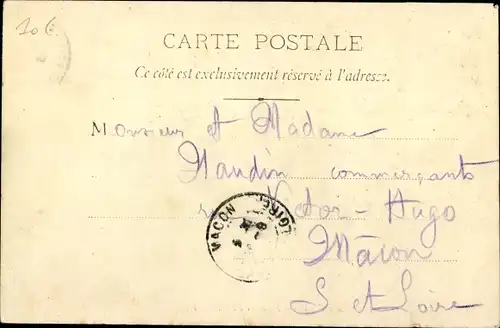 10 c
CARTE POSTALE
Ce côté est exclusivement réservé à l'adresse.
Monsieur et Madame
Naudin commerçants
r Victor-Hugo
MACON
Mâcon
S. et Loire